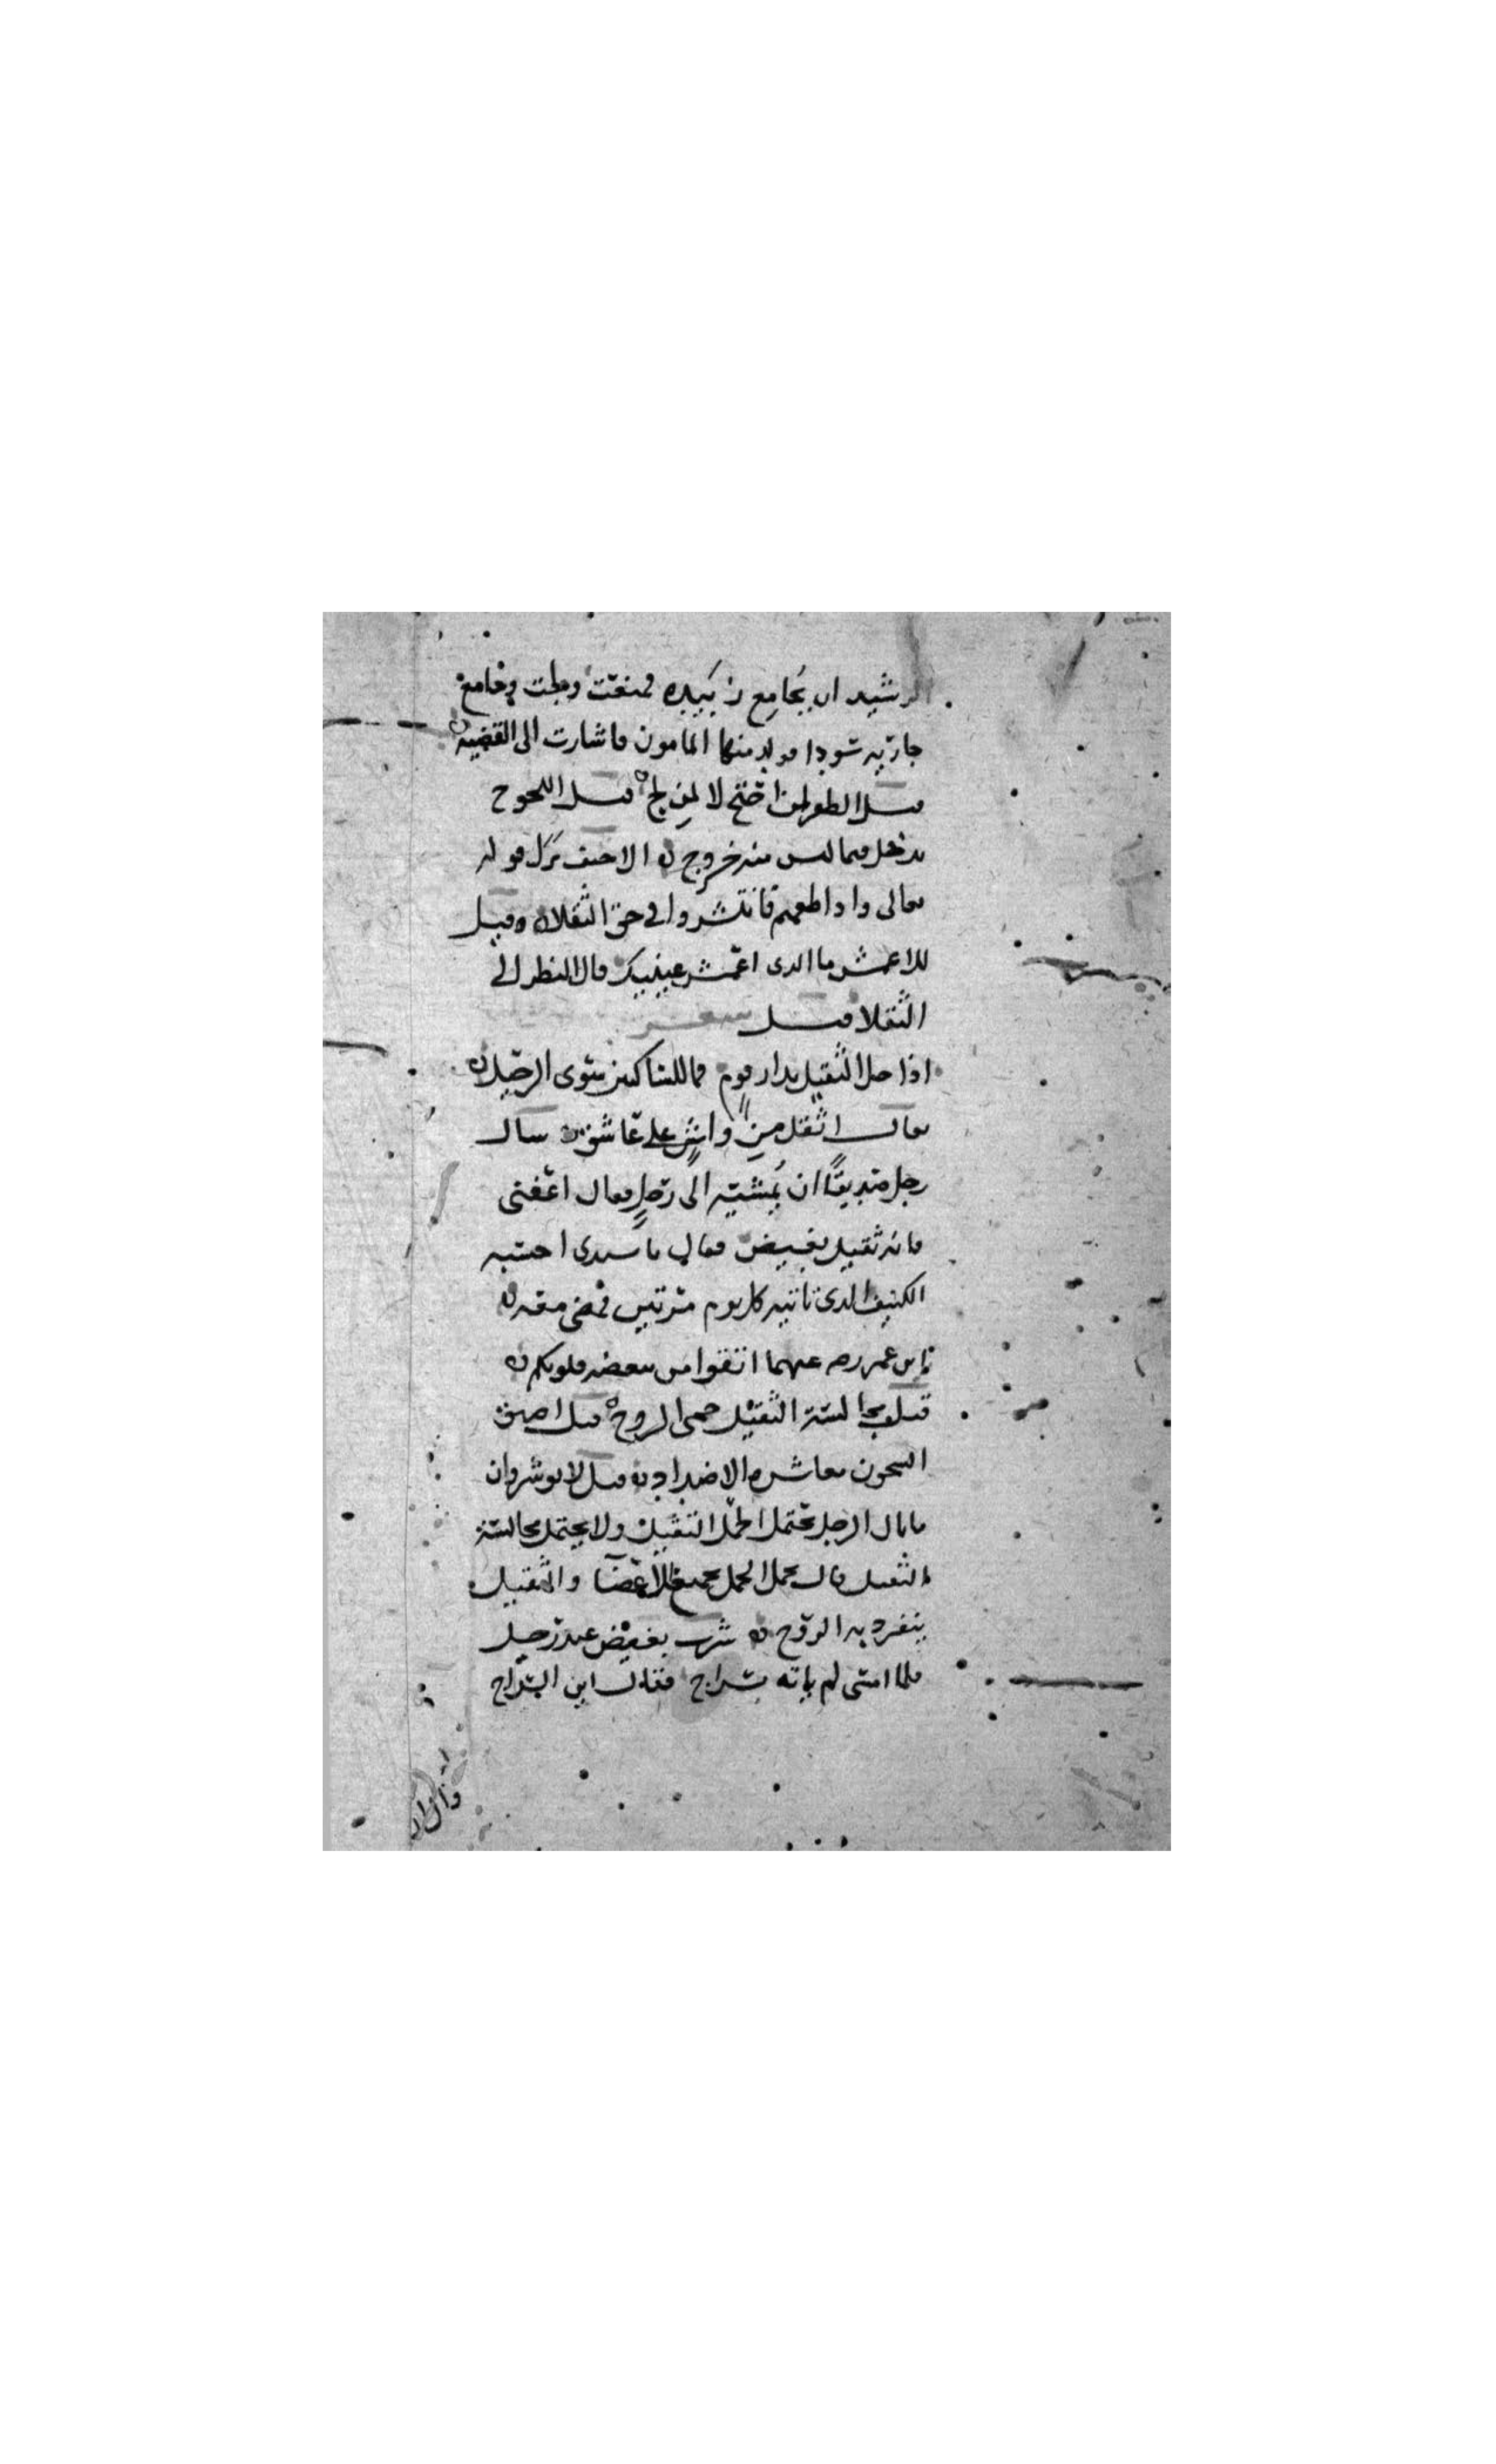 الرشيد ان يجامع زبيده فمنعت ولجت فجامع
جاريه سودا فولد منها المامون فاشارت الى القضيه
قيل الظفر لمن احتج لا لمن لج قيل اللجوج
يدخل فيما ليس منه خروج الاحنف نزل قوله
تعالى واذا طعمتم فانتشروا في حق الثقلا وقيل
للاعمش ما الدى اعمش عينيك قال النظر الى
الثقلا قيل شعر
اذا حل الثقيل بدار قوم فما للساكنين سوى الرحيل
يقال اثقل من واش على عاشق سال
رجل صديقا ان يمشيه الى رجل فقال اعفنى
فانه ثقيل بغيض فقال يا سيدى احسبه
الكنيف الدى تاتيه كل يوم مرتين فمضى معه
ابن عمر رضه عنهما اتقوا من تبغضه قلوبكم
قيل مجالسة الثقيل حمى الروح قيل اضيق
السجون معاشره الاضداد قيل لانوشروان
ما بال الرجل يحتمل الحمل الثقيل ولا يحتمل مجالسة
الثقيل قال يحمل الحمل بجميع الاعضا والثقيل
ينفرد به الروح شرب بغيض عند رجل
فلما امسى لم ياته بسراج فقال اين السراج